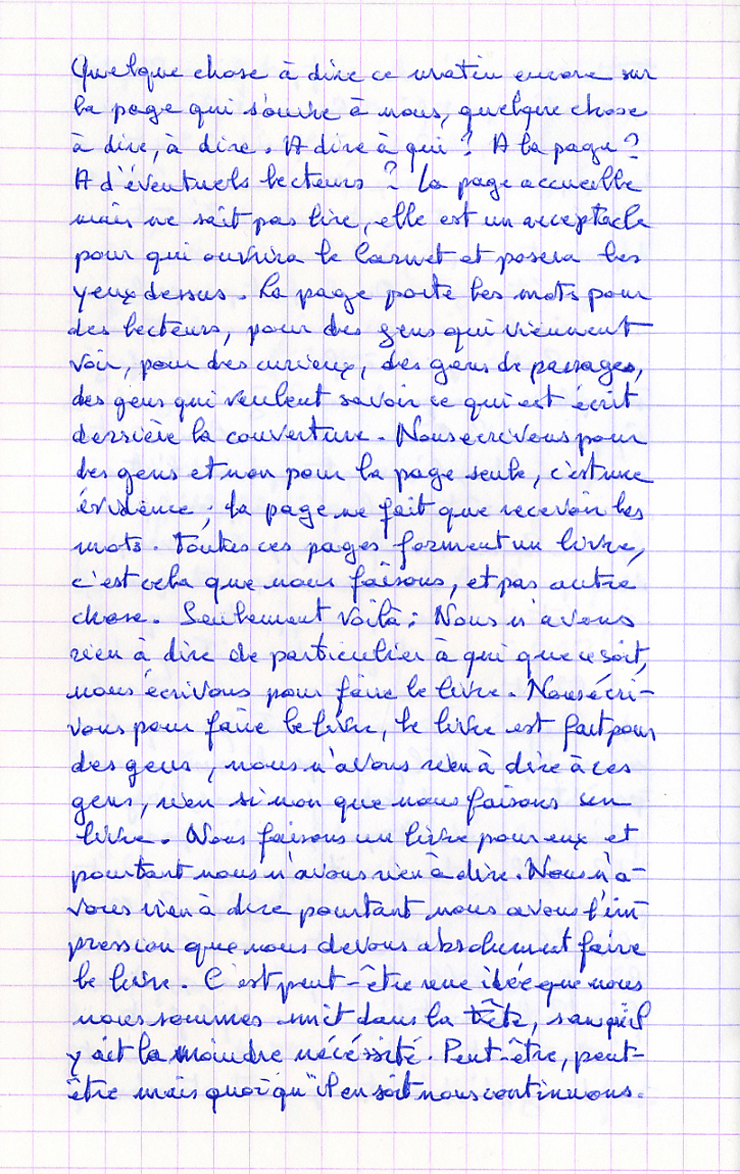 Quelque chose à dire ce matin encore sur
la page qui s'ouvre à nous, quelque chose
à dire, à dire. A dire à qui ? A la page ?
A d'éventuels lecteurs ? La page accueille
mais ne sait pas lire, elle est un réceptacle
pour qui ouvrira le carnet et posera les
yeux dessus. La page porte les mots pour
des lecteurs, pour des gens qui viennent
voir, pour des curieux, des gens de passages,
des gens qui veulent savoir ce qui est écrit
derrière la couverture. Nous écrivons pour
des gens et non pour la page seule, c'est une
évidence ; la page ne fait que recevoir les
mots. Toutes ces pages forment un livre,
c'est cela que nous faisons, et pas autre
chose. Seulement voilà : Nous n'avons
rien à dire de particulier à qui que ce soit,
nous écrivons pour faire le livre. Nous écri-
vons pour faire le livre, le livre est fait pour
des gens, nous n'avons rien à dire à ces
gens, rien sinon que nous faisons un
livre. Nous faisons un livre pour eux et
pourtant nous n'avons rien à dire. Nous n'a-
vons rien à dire pourtant nous avons l'im
pression que nous devons absolument faire
le livre. C'est peut-être une idée que nous
nous sommes mit dans la tête, sans qu'il
y ait la moindre nécéssité. Peut-être, peut-
être mais quoiqu'il en soit nous continuons.